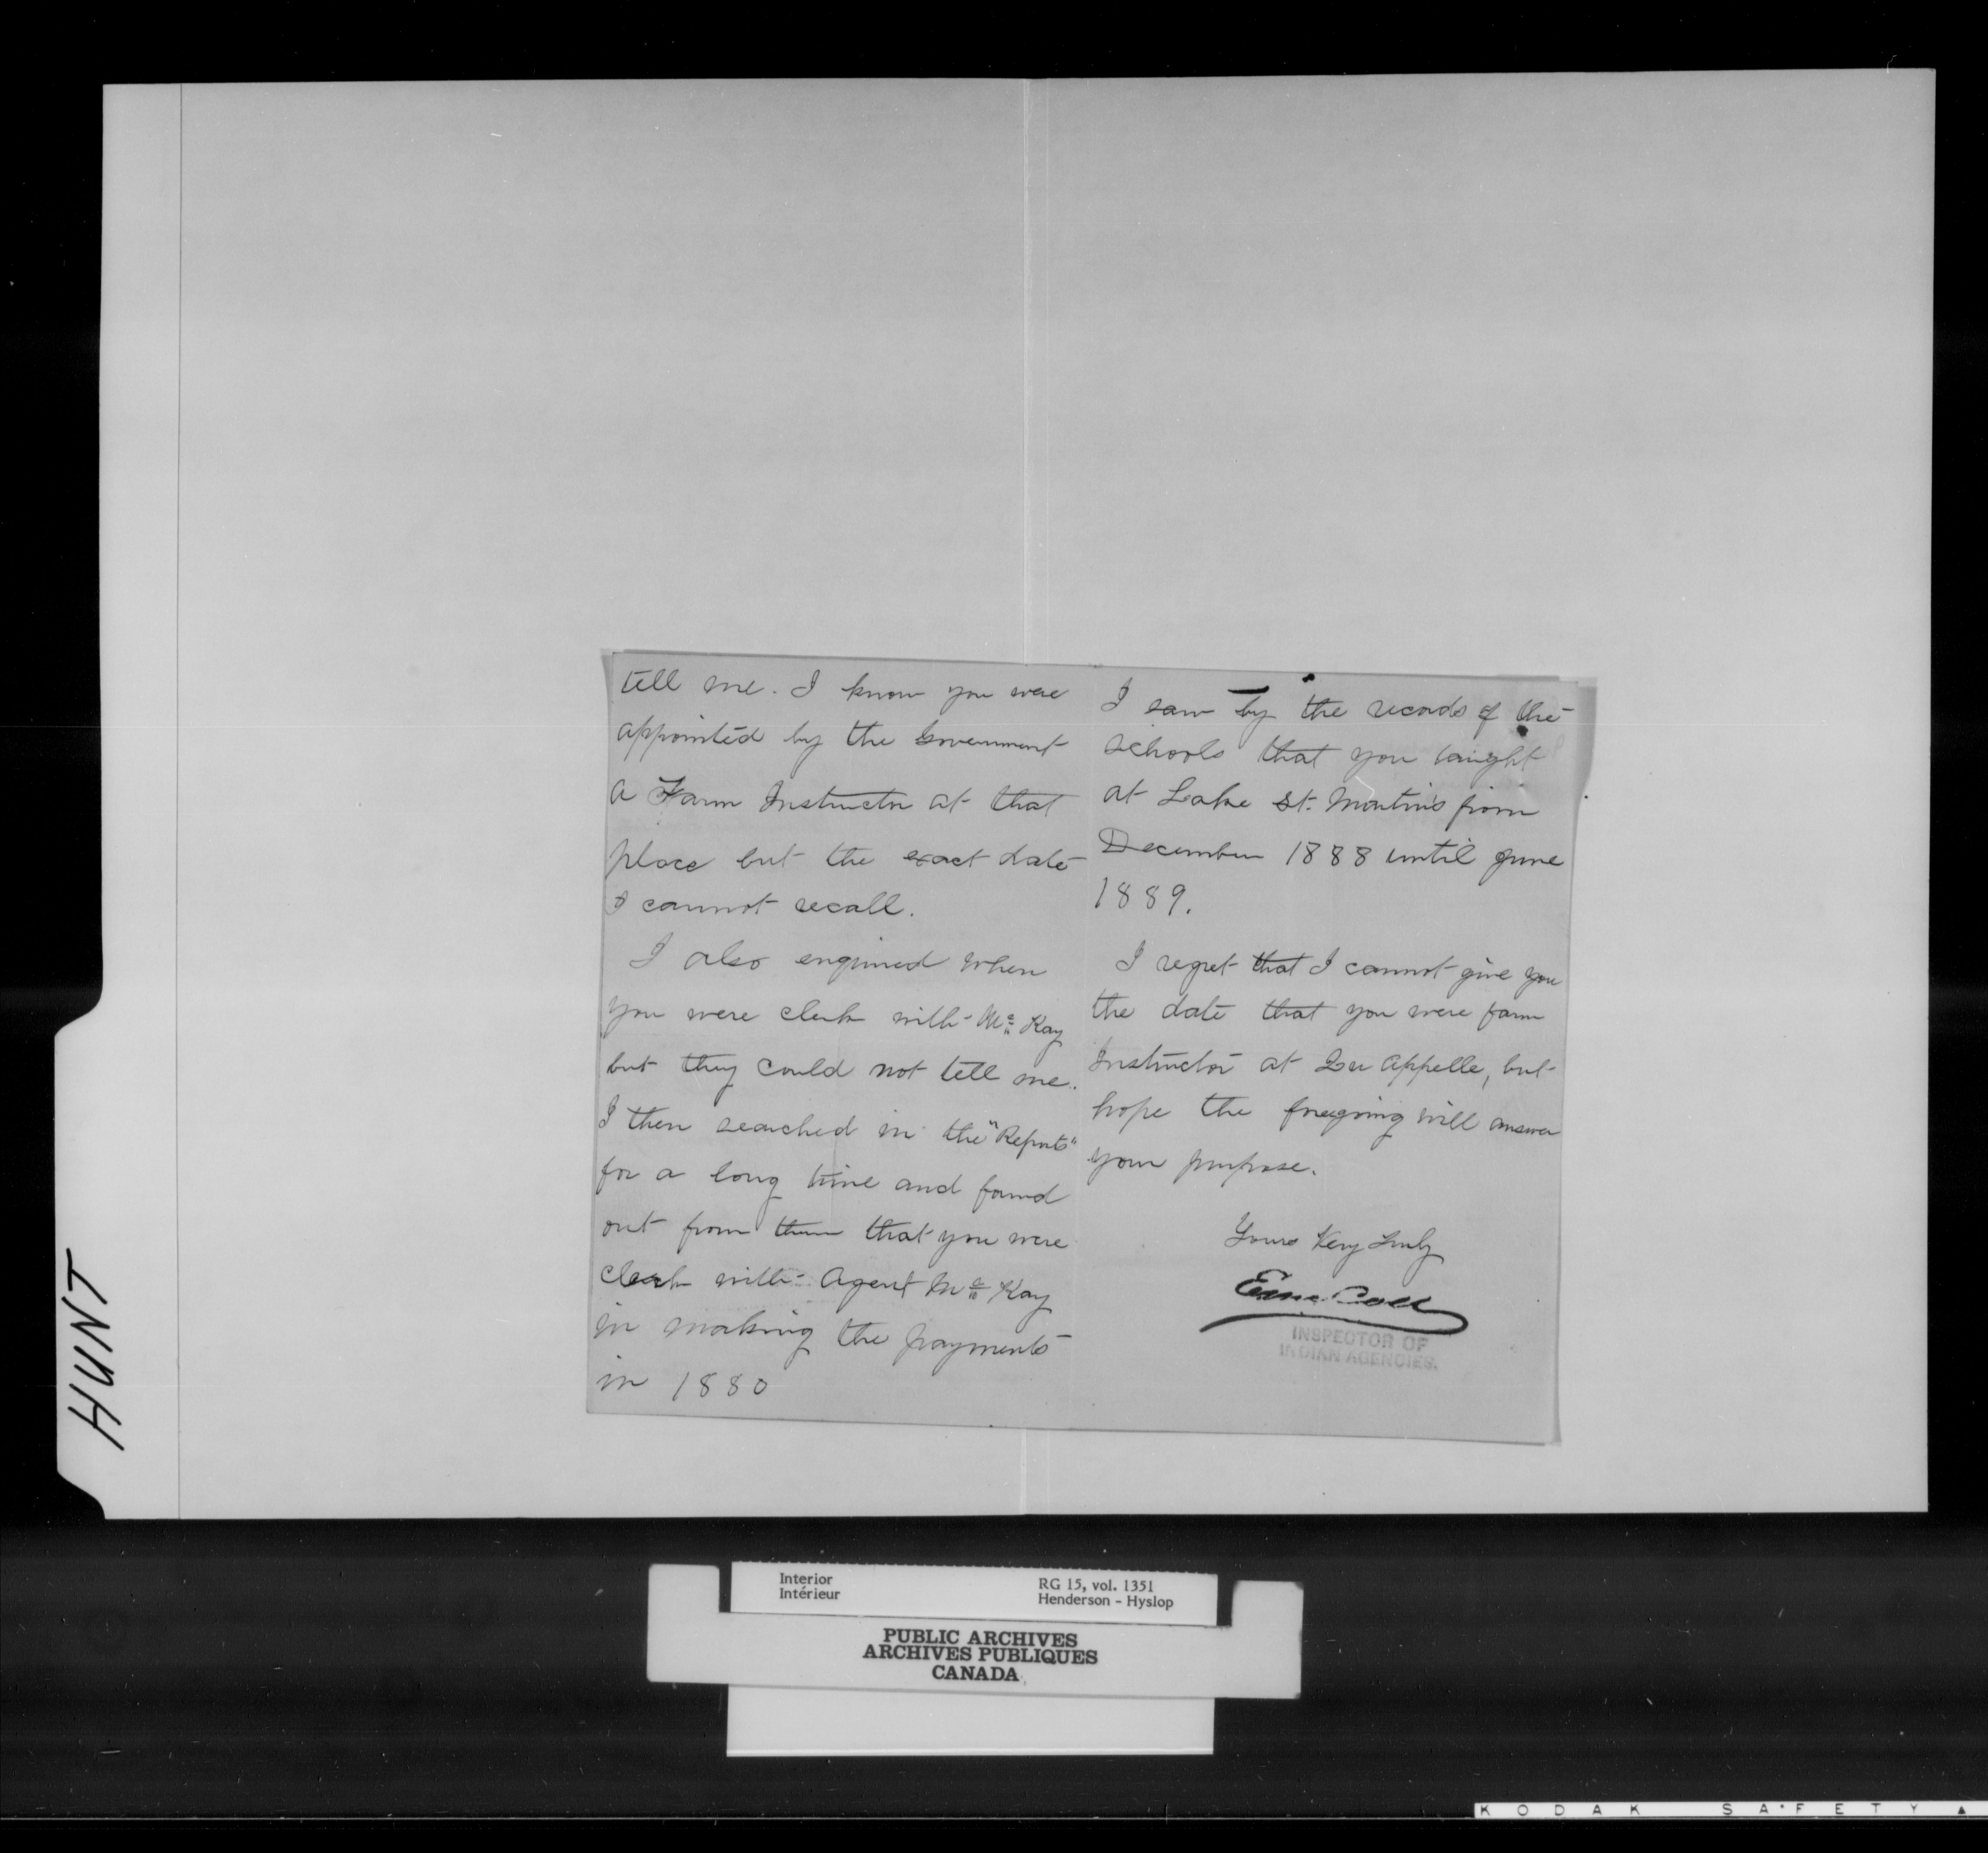 HUNT
tell me. I know you were
appointed by the Government
a Farm Instructor at that
place but the exact date
I cannot recall.
I also enquired when
you were clerk with McKay
but they could not tell me.
I then searched in the "Reports"
for a long time and found
out from them that you were
clerk with Agent McKay
in making the payments
in 1880
I saw by the records of the
schools that you taught
at Lake St. Martin's from
December 1888 until June
1889.
I regret that I cannot give you
the date that you were farm
Instructor at Qu Appelle, but
hope the foregoing will answer
your purpose.
Yours Very Truly
INSPECTOR OF
INDIAN AGENCIES.
Interior
Intérieur
RG 15, vol. 1351
Henderson - Hyslop
PUBLIC ARCHIVES
ARCHIVES PUBLIQUES
CANADA
KODAK SAFETY